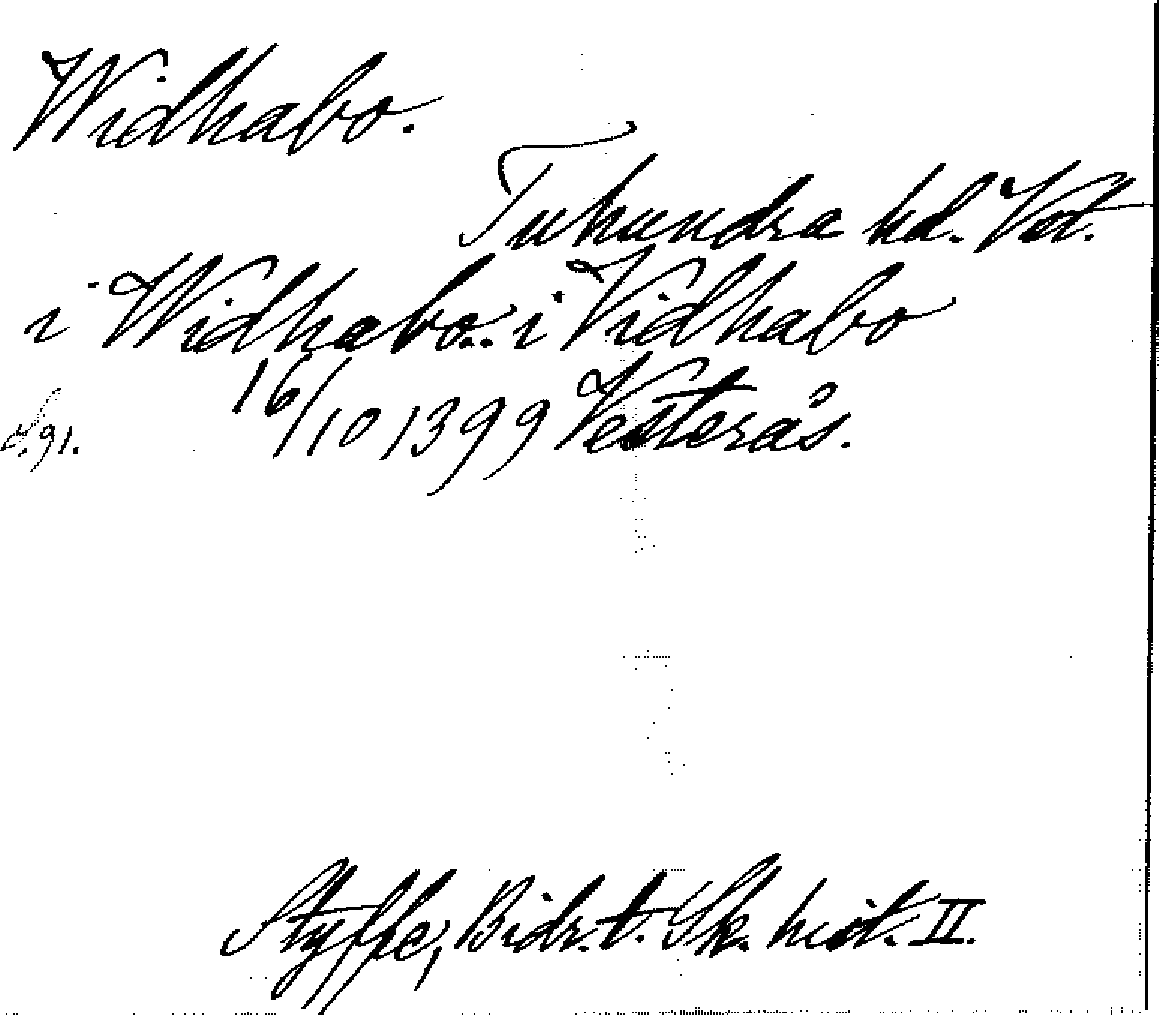 Widhabo.
Tuhundra hd. Vst.
i Widhabo.. i Vidhabo
16/10 1399 Vesterås.
d. 91.
Styffe, Bidr. t. Sk. hist. II.